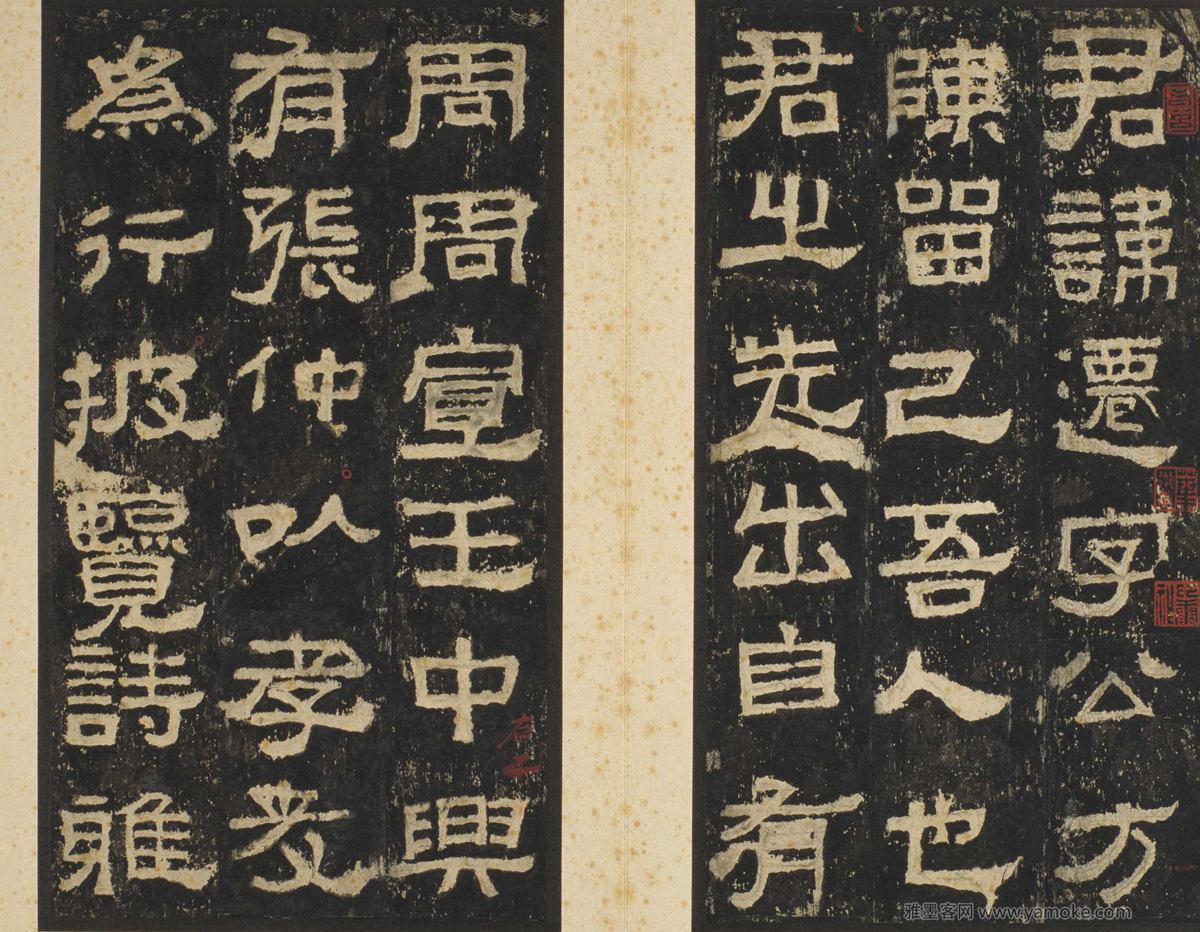 君諱遷字公方
陳留己吾人也
君之先出自有
周周宣王中興
有張仲以孝友
為行披覽詩雅
雅墨客网 www.yamoke.com